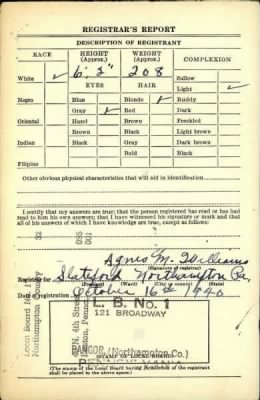 REGISTRAR'S REPORT
DESCRIPTION OF REGISTRANT
RACE HEIGHT (Approx.) WEIGHT (Approx.) COMPLEXION
White ✓ 6' 2" 208 Sallow
EYES HAIR Light ✓
Negro Blue Blonde ✓ Ruddy
Gray ✓ Red Dark
Oriental Hazel Brown Freckled
Brown Black Light brown
Indian Black Gray Dark brown
Bald Black
Filipino
Other obvious physical characteristics that will aid in identification
I certify that my answers are true; that the person registered has read or has had
read to him his own answers; that I have witnessed his signature or mark and that
all of his answers of which I have knowledge are true, except as follows:
32 095 001
Agnes M. Williams
(Signature of registrar)
Slateford Northampton Pa.
(Precinct) (Ward) (City or county) (State)
Date of registration October 16th 1940
Local Board No. 1
Northampton County
N. 4th Street
L. B. No. 1
121 BROADWAY
BANGOR, (Northampton Co.)
PENNSYLVANIA
(STAMP OF LOCAL BOARD)
(The stamp of the Local Board having jurisdiction of the registrant
shall be placed in the above space.)